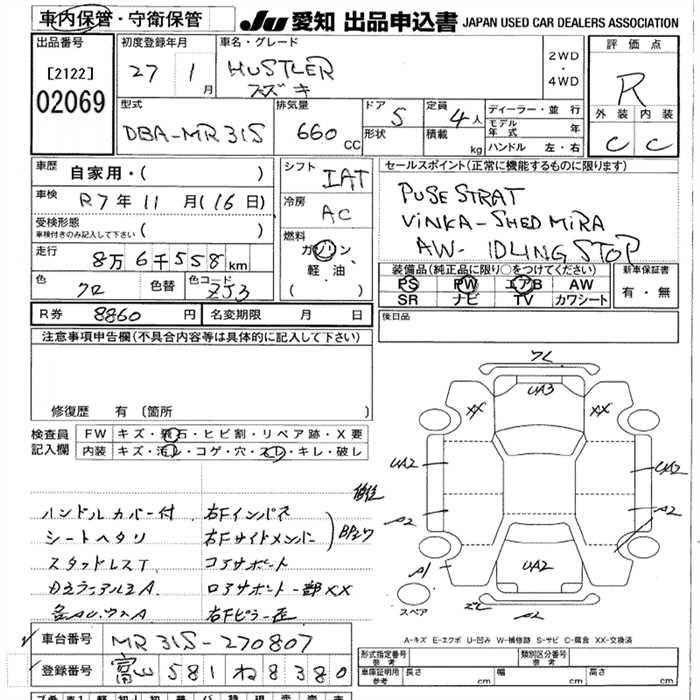 車内保管・守衛保管
JU 愛知 出品申込書 JAPAN USED CAR DEALERS ASSOCIATION
出品番号
[2122]
02069
初度登録年月
27 1 月
車名・グレード
HUSTLER
スズキ
2WD
・
4WD
評価点
R
外装 内装
C C
型式
DBA-MR31S
排気量
660 CC
ドア 5
形状
定員 4人
積載 kg
ディーラー・並行
モデル年式 年
ハンドル 左・右
車歴
自家用・( )
車検
R7年11月(16日)
受検形態
車検付きのみ記入して下さい ( )
走行
8万6千558km
色 クロ 色替 色コード ZJ3
シフト
IAT
冷房
AC
燃料
ガソリン
軽油
( )
セールスポイント(正常に機能するものに限ります)
PUSE STRAT
VINKA-SHED MIRA
AW- IDLING STOP
装備品(純正品に限り○をつけてください)
PS PW エアB AW
SR ナビ TV カワシート
新車保証書
有・無
R券 8860円 名変期限 月 日
後日品
注意事項申告欄(不具合内容等は具体的に記入して下さい)
修復歴 有 (箇所 )
検査員
記入欄
FW キズ・飛石・ヒビ割・リペア跡・X要
内装 キズ・汚れ・コゲ・穴・スレ・キレ・破レ
ハンドルカバー付 右Fインパネ
シートヘタリ 右Fサイドメンバー
スタッドレスT コアサポート
ロアサポート一部XX
右Fピラー歪
フレ
UA3
XX XX
UA2 UA2
A2 A2
A1
UA2
A2
スペア
A-キズ E-エクボ U-凹み W-補修跡 S-サビ C-腐食 XX-交換済
車台番号 MR31S-270807
登録番号 富山 581 ね 8380
形式指定番号 参考
類別区分番号 参考
車庫証明用 参考 長さ cm 幅 cm 高さ cm